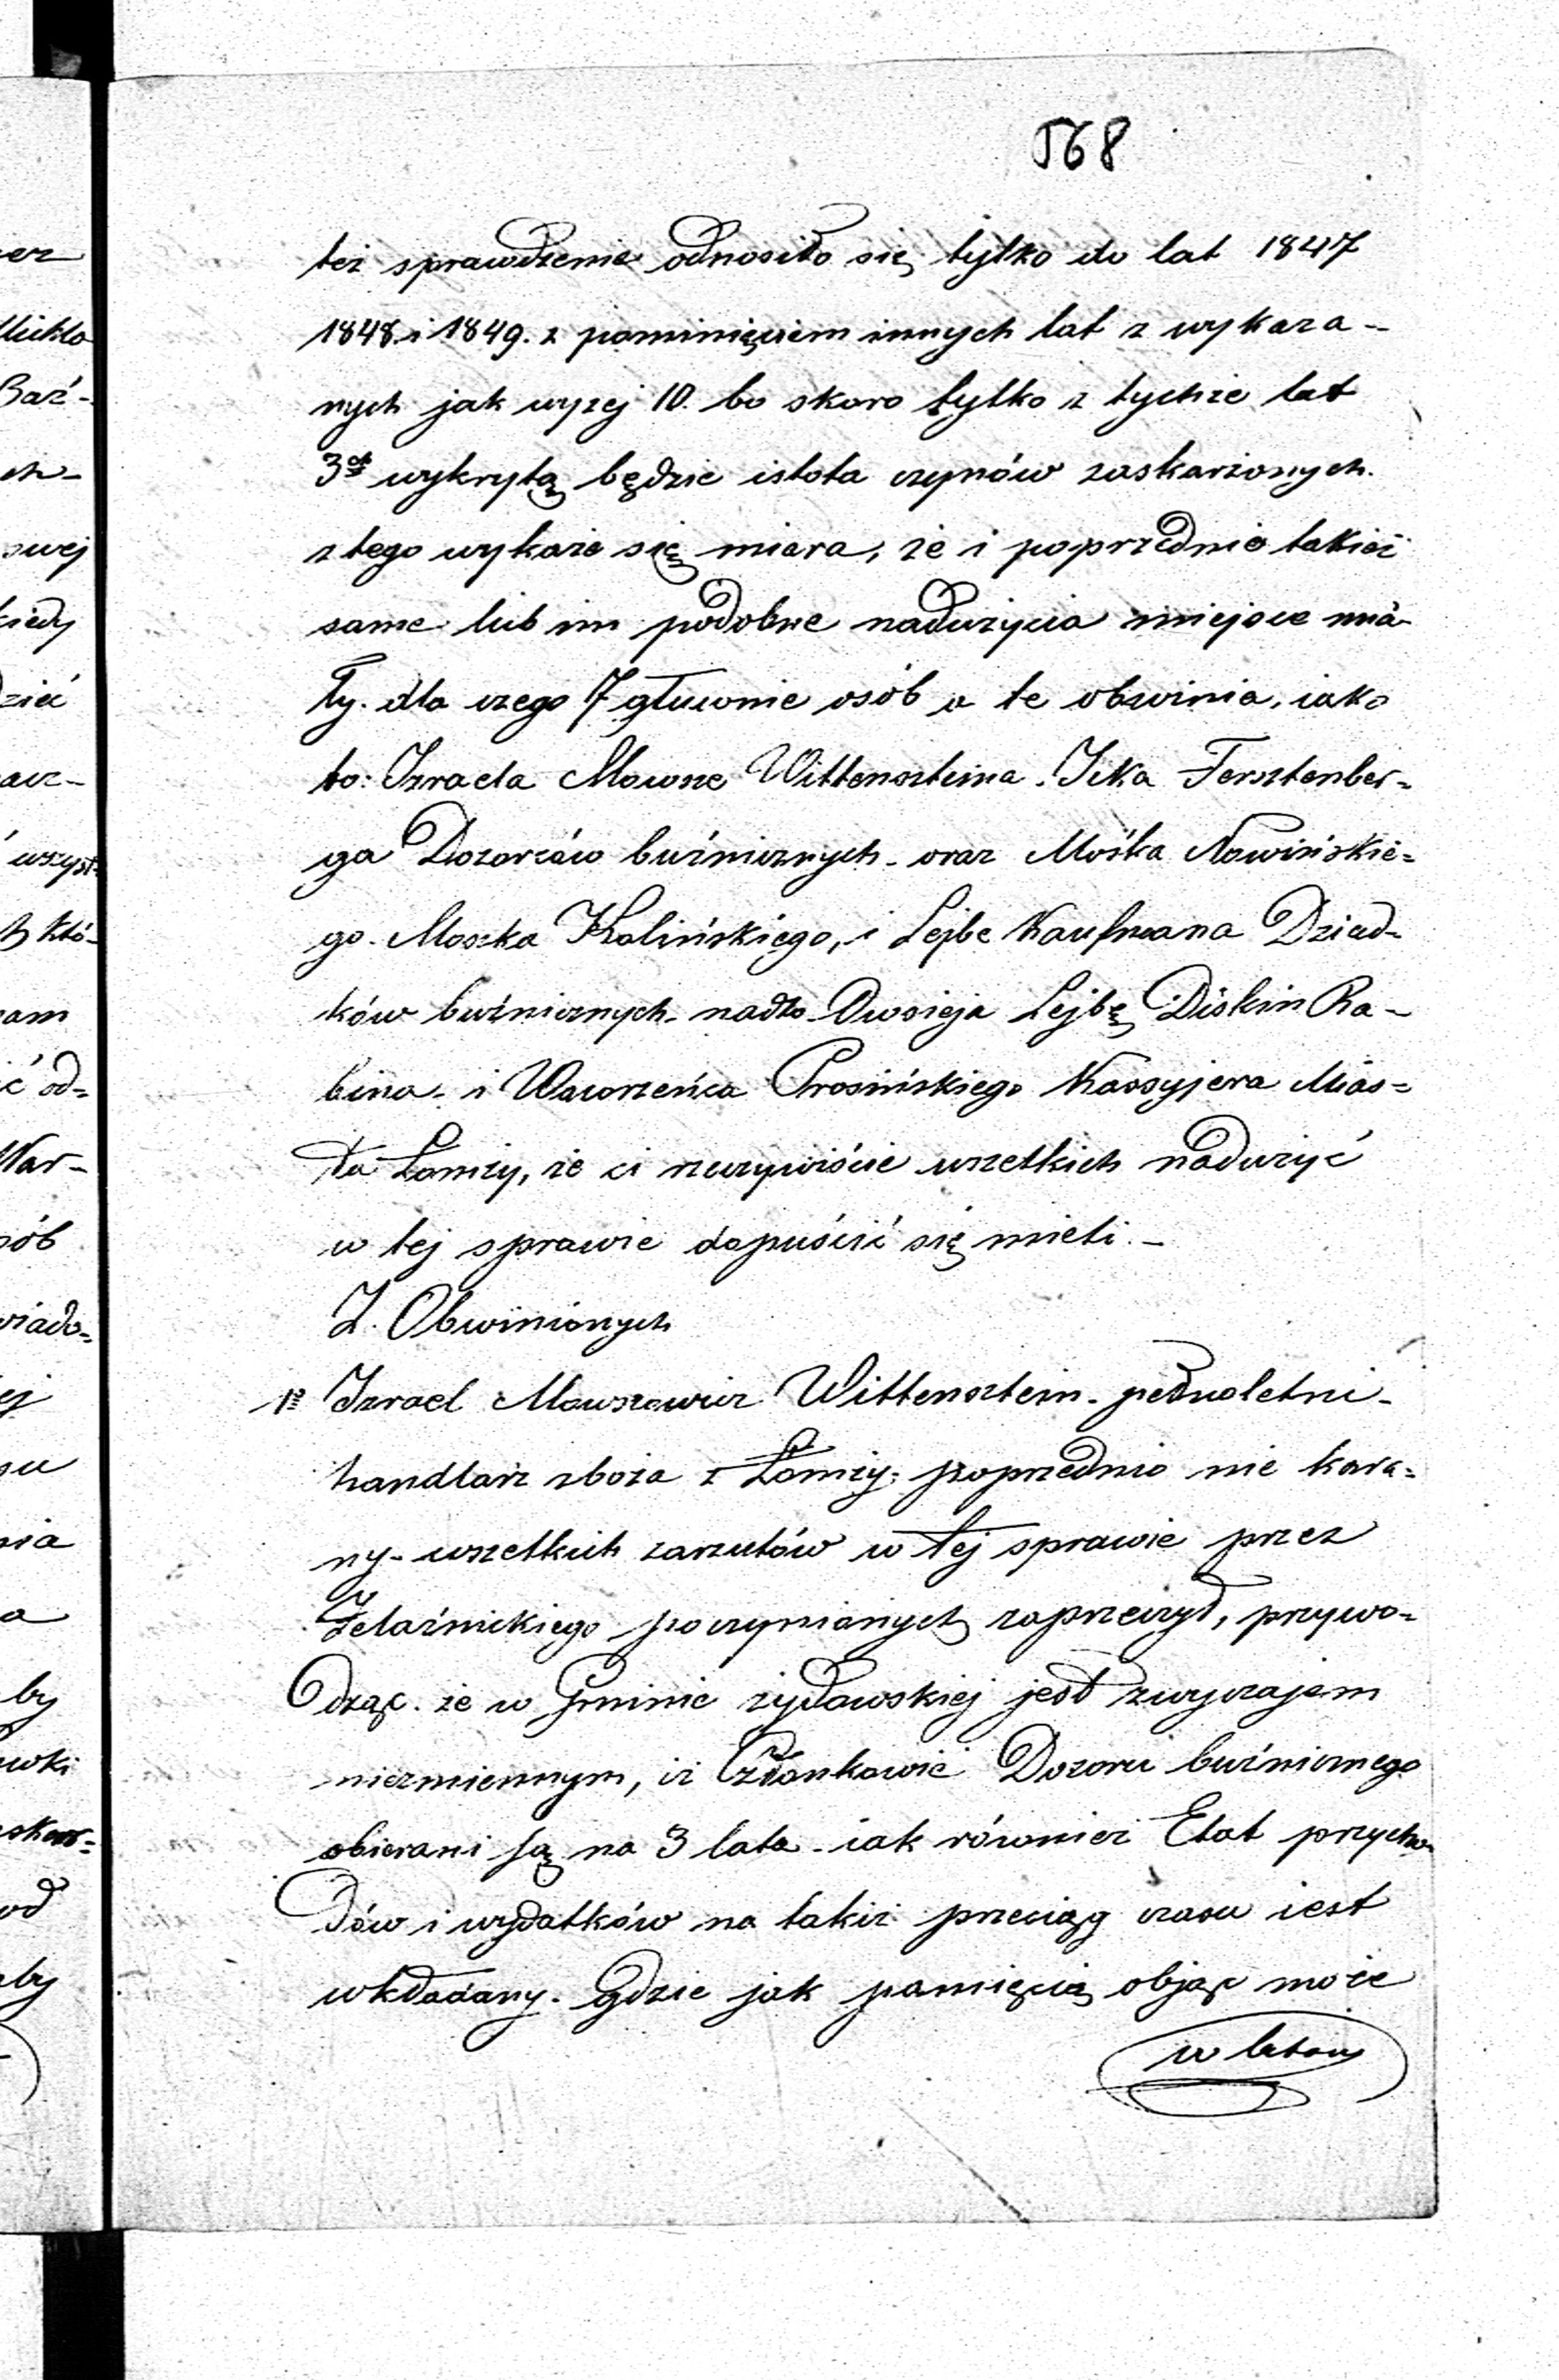 568
też sprawdzenie odnosiło się tylko do lat 1847
1848. i 1849. z pominięciem innych lat z wykaza-
nych jak wyżej 10. bo skoro tylko z tychże lat
3ch wykrytą będzie istota czynów zaskarżonych.
z tego wykaże się miara, że i poprzednio takież
same lub im podobne nadużycia miejsce mia-
ły. dla czego 7 głuwnie osób a te obwinia, iako
to: Izraela Mowsze Wittenszteina. Icka Fersztenber=
ga Dozorców buźnicznych - oraz Mośka Nowińskie=
go. Moszka Kalińskiego, i Lejbe Kaufmana Dziad-
ków buźnicznych - nadto Owsieja Lejbę Diskin Ra-
bina - i Wawrzeńca Prosińskiego Kassyjera Mias=
ta Łomży, że ci rzeczywiście wszelkich nadużyć
w tej sprawie dopuścić się mieli. -
Z. Obwinionych
1o Izrael Mowszowicz Wittensztein - pełnoletni -
handlarz zboża z Łomży, poprzednio nie kara=
ny - wszelkich zarzutów w tej sprawie przez
Żelaźnickiego poczynianych zaprzeczył, przywo=
dząc. że w Gminie żydowskiej jest zwyczajem
niezmiennym, iż Członkowie Dozoru buźnicznego
obierani są na 3 lata - iak również Etat przycho-
dów i wydatków na takiż przeciąg czasu iest
wkładany. Gdzie jak pamięcią objąć może
er
Baź-
ch-
swej
kiedy
dzieć
wszyst=
któ-
am
ć od=
War-
sób
wiado=
ej
su
nia
a
by
wki
skar=
od
aby